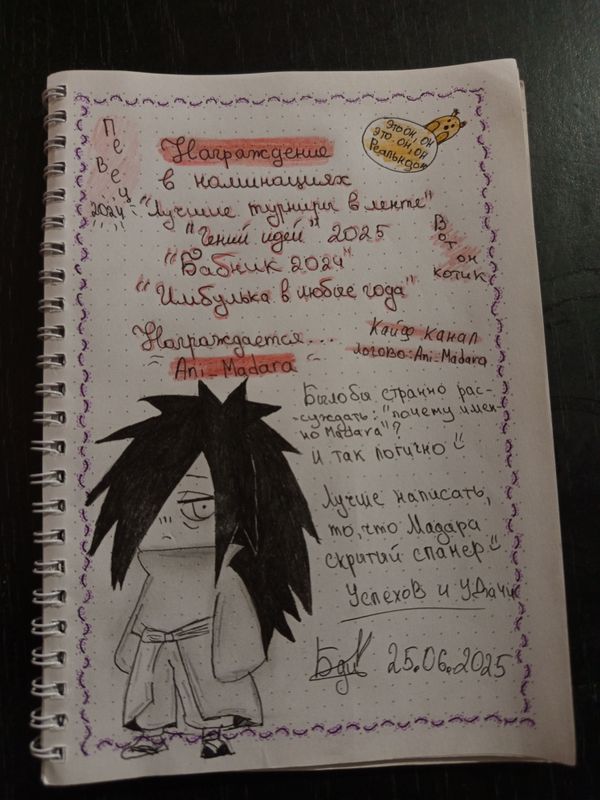 Певец
2024:
Награждение
в номинациях
"Лучшие турниры в ленте"
"Гений идей" 2025
"Бабник 2024"
"Имбулька в любые года"
Это он, он
Это он, он
Реальк дам
Вот он
котик
Награждается...
Ani_Madara
Кайф канал
логово: Ani_Madara
Было бы странно рас-
-суждать: "почему имен-
но Madara"?
И так логично
Лучше написать,
то, что Мадара
скрытый спанер
Успехов и удачи
25.06.2025